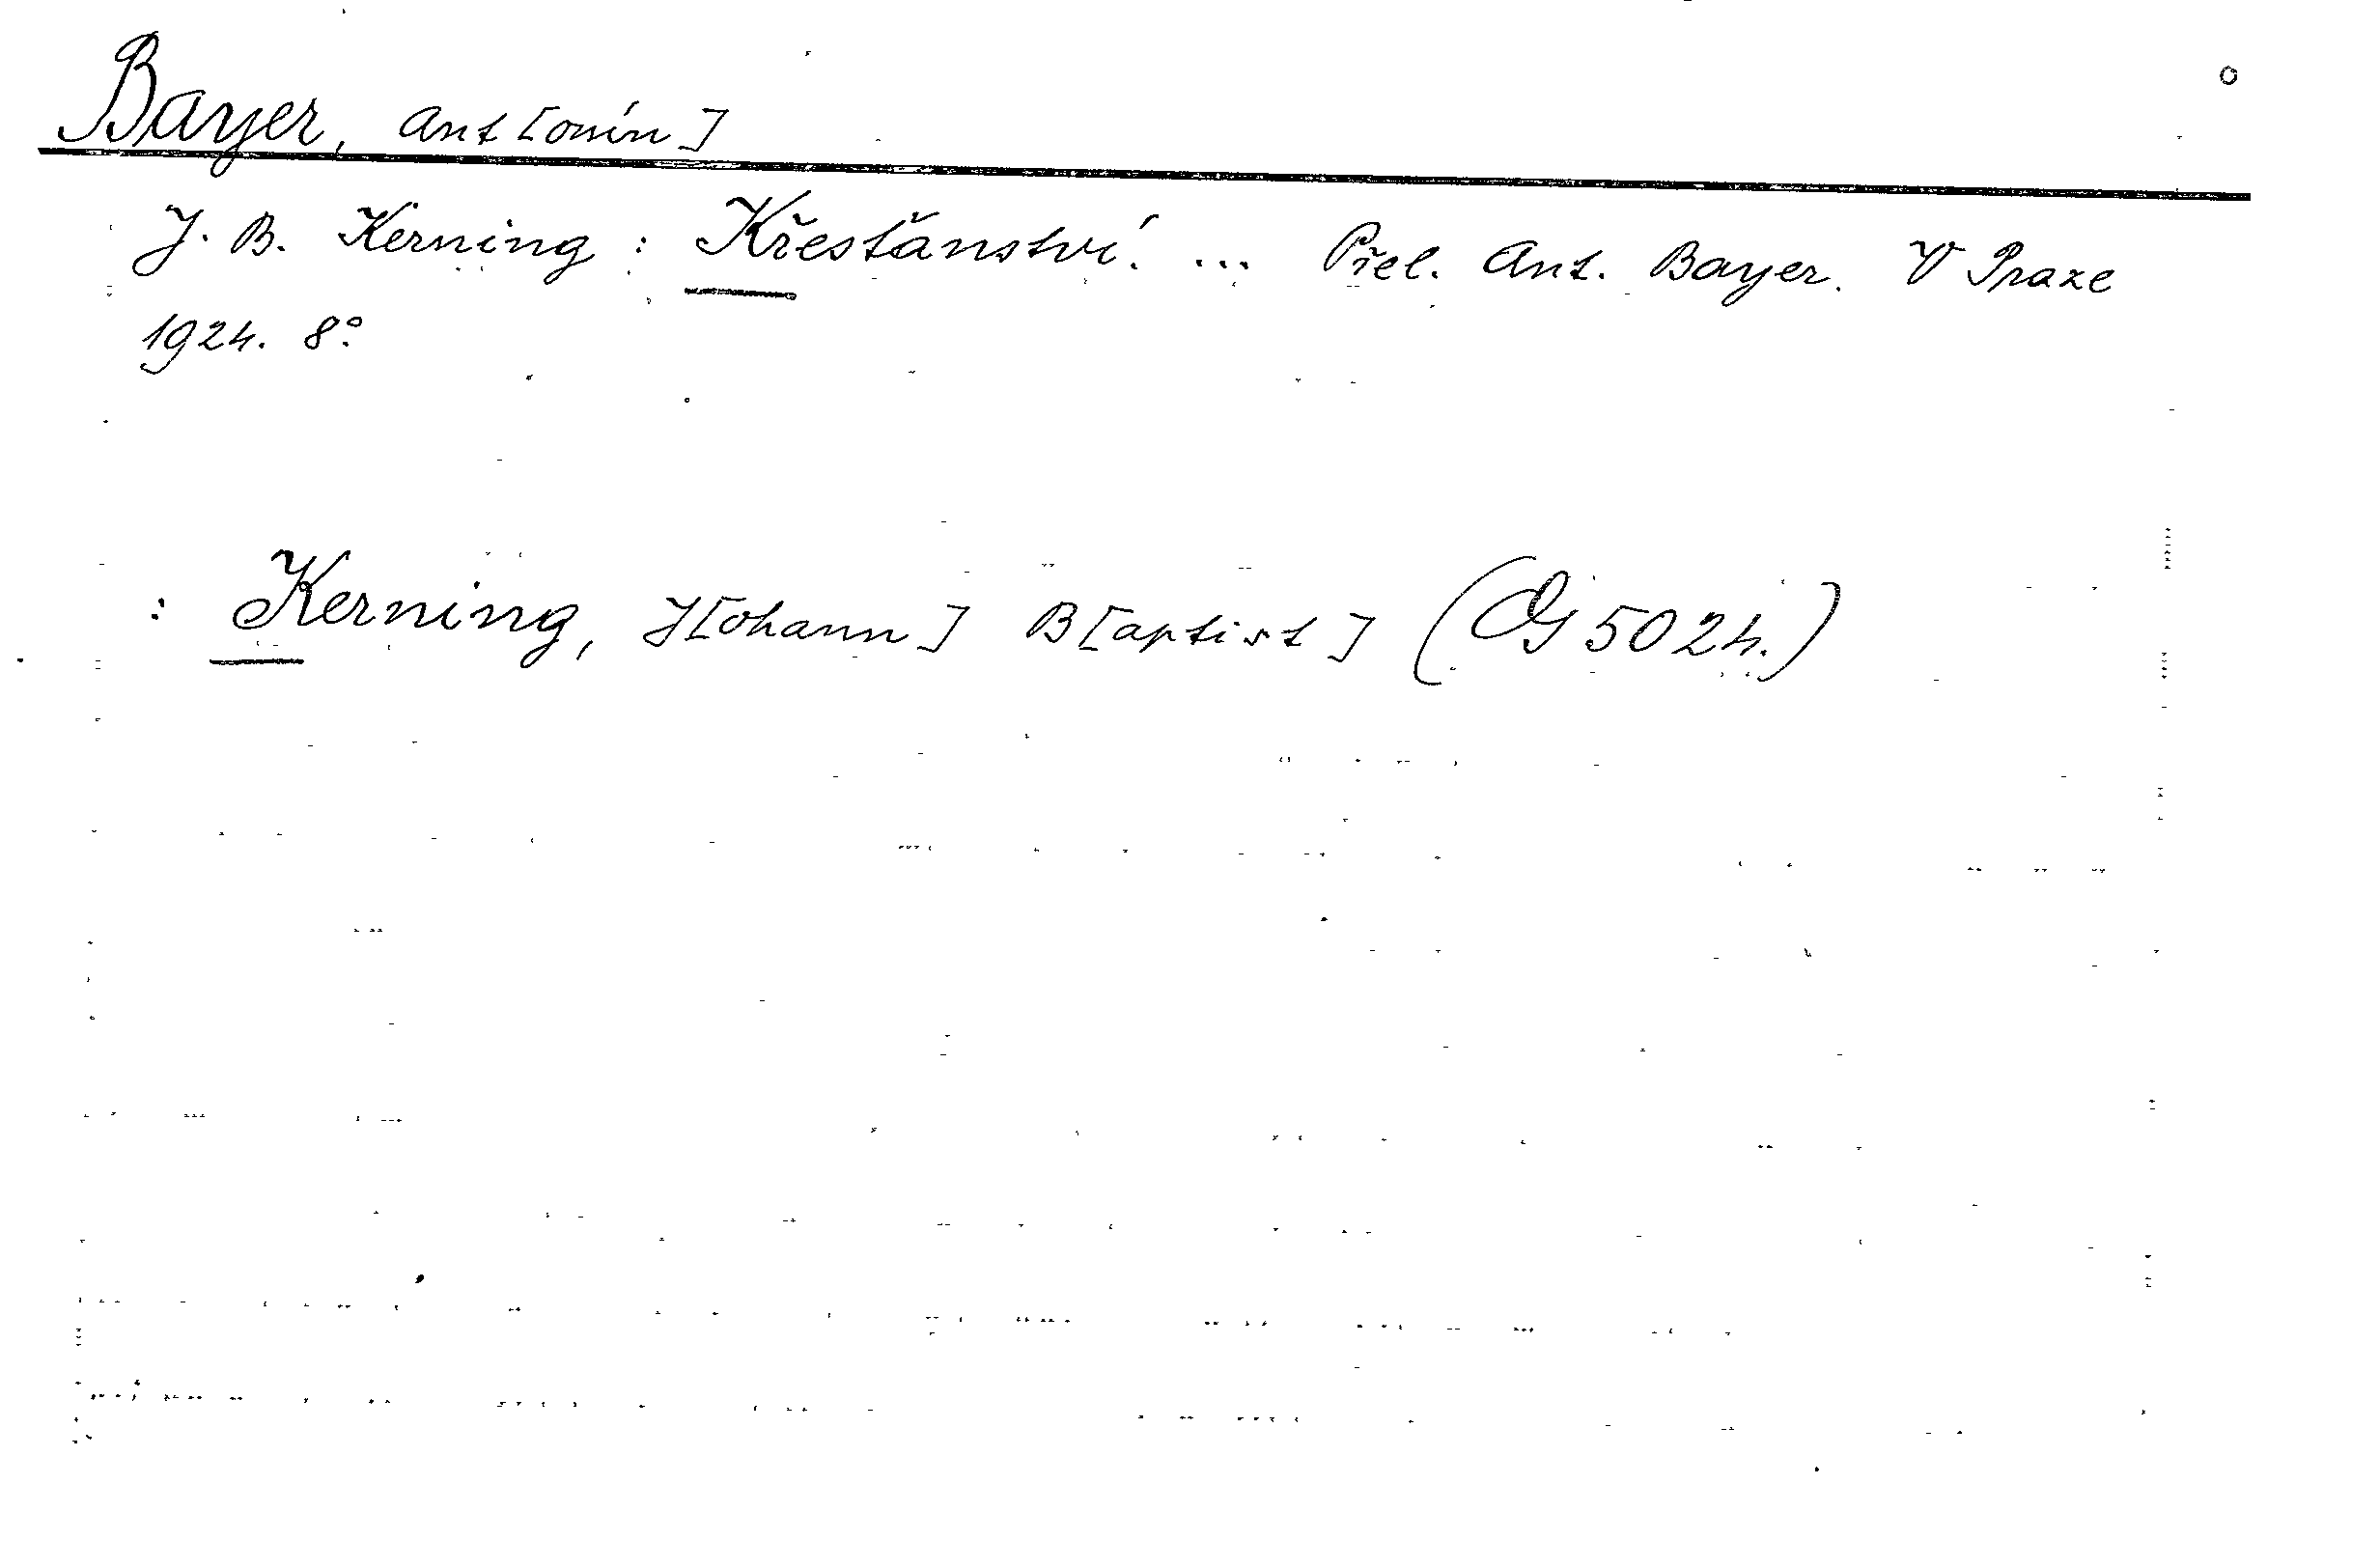 Bayer, Ant[onín]
J. B. Kerning : Křesťanství. ... Přel. Ant. Bayer. V Praze
1924. 8°.
: Kerning, J[ohann] B[aptist] ( 5024.)